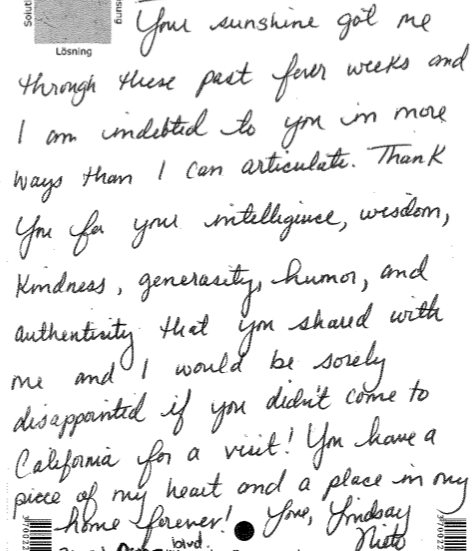 Lösning
Your sunshine got me
through these past fewer weeks and
I am indebted to you in more
ways than I can articulate. Thank
You for your intelligence, wisdom,
Kindness, generosity, humor, and
authenticity that you shared with
me and I would be sorely
disappointed if you didn't come to
California for a visit! You have a
piece of my heart and a place in my
home forever! Love, Lindsay
Nieto
blvd.